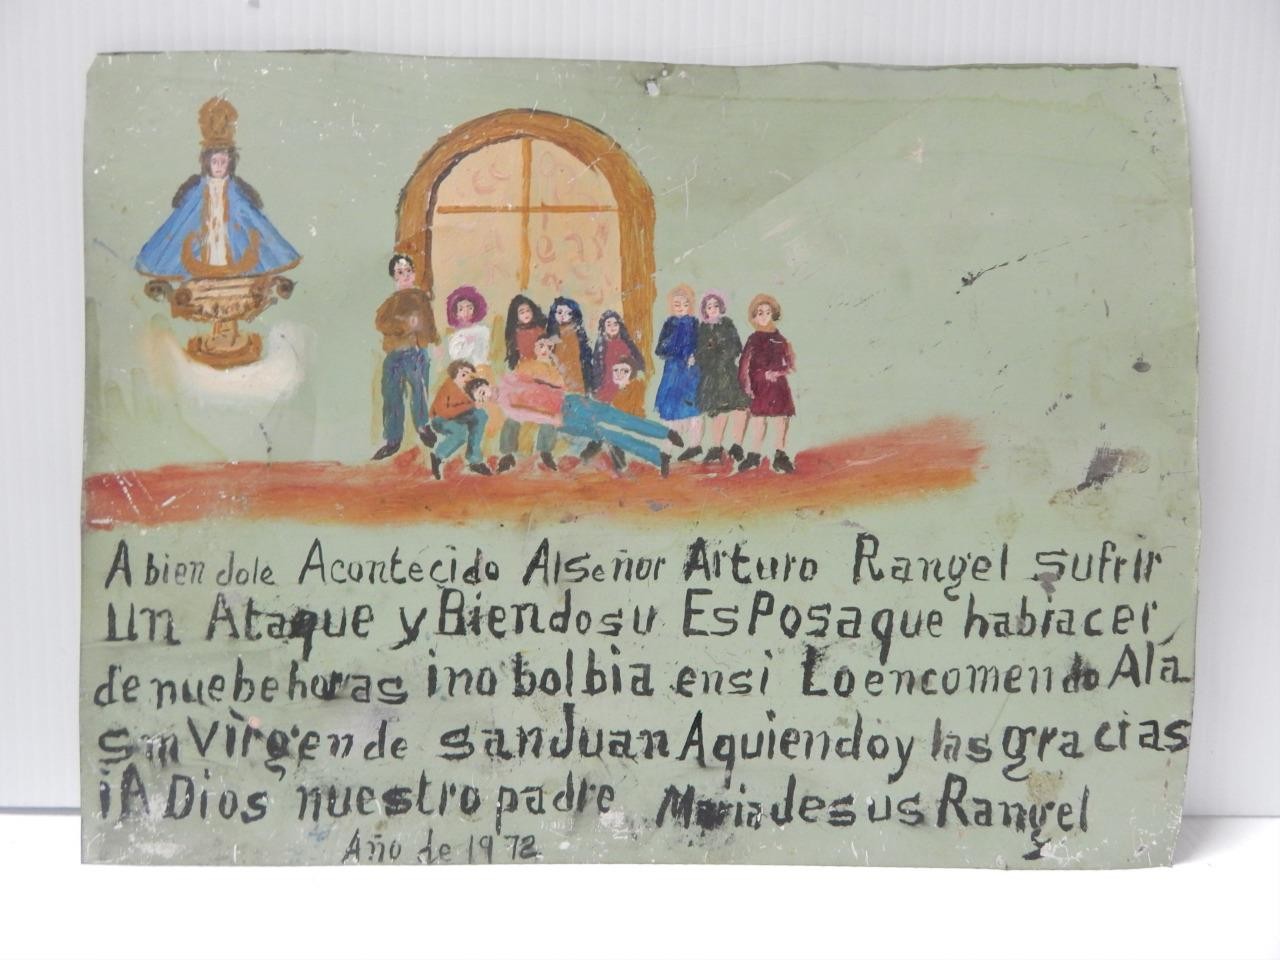 Abiendole Acontecido Alseñor Arturo Rangel sufrir
un Ataque y Biendosu EsPosaque habiacer
denuebehoras ino bolbia ensi Loencomendo Ala
Sma Virgende sanJuan Aquiendoy las gracias
iA Dios nuestro padre Mariadesus Rangel
Año de 1972